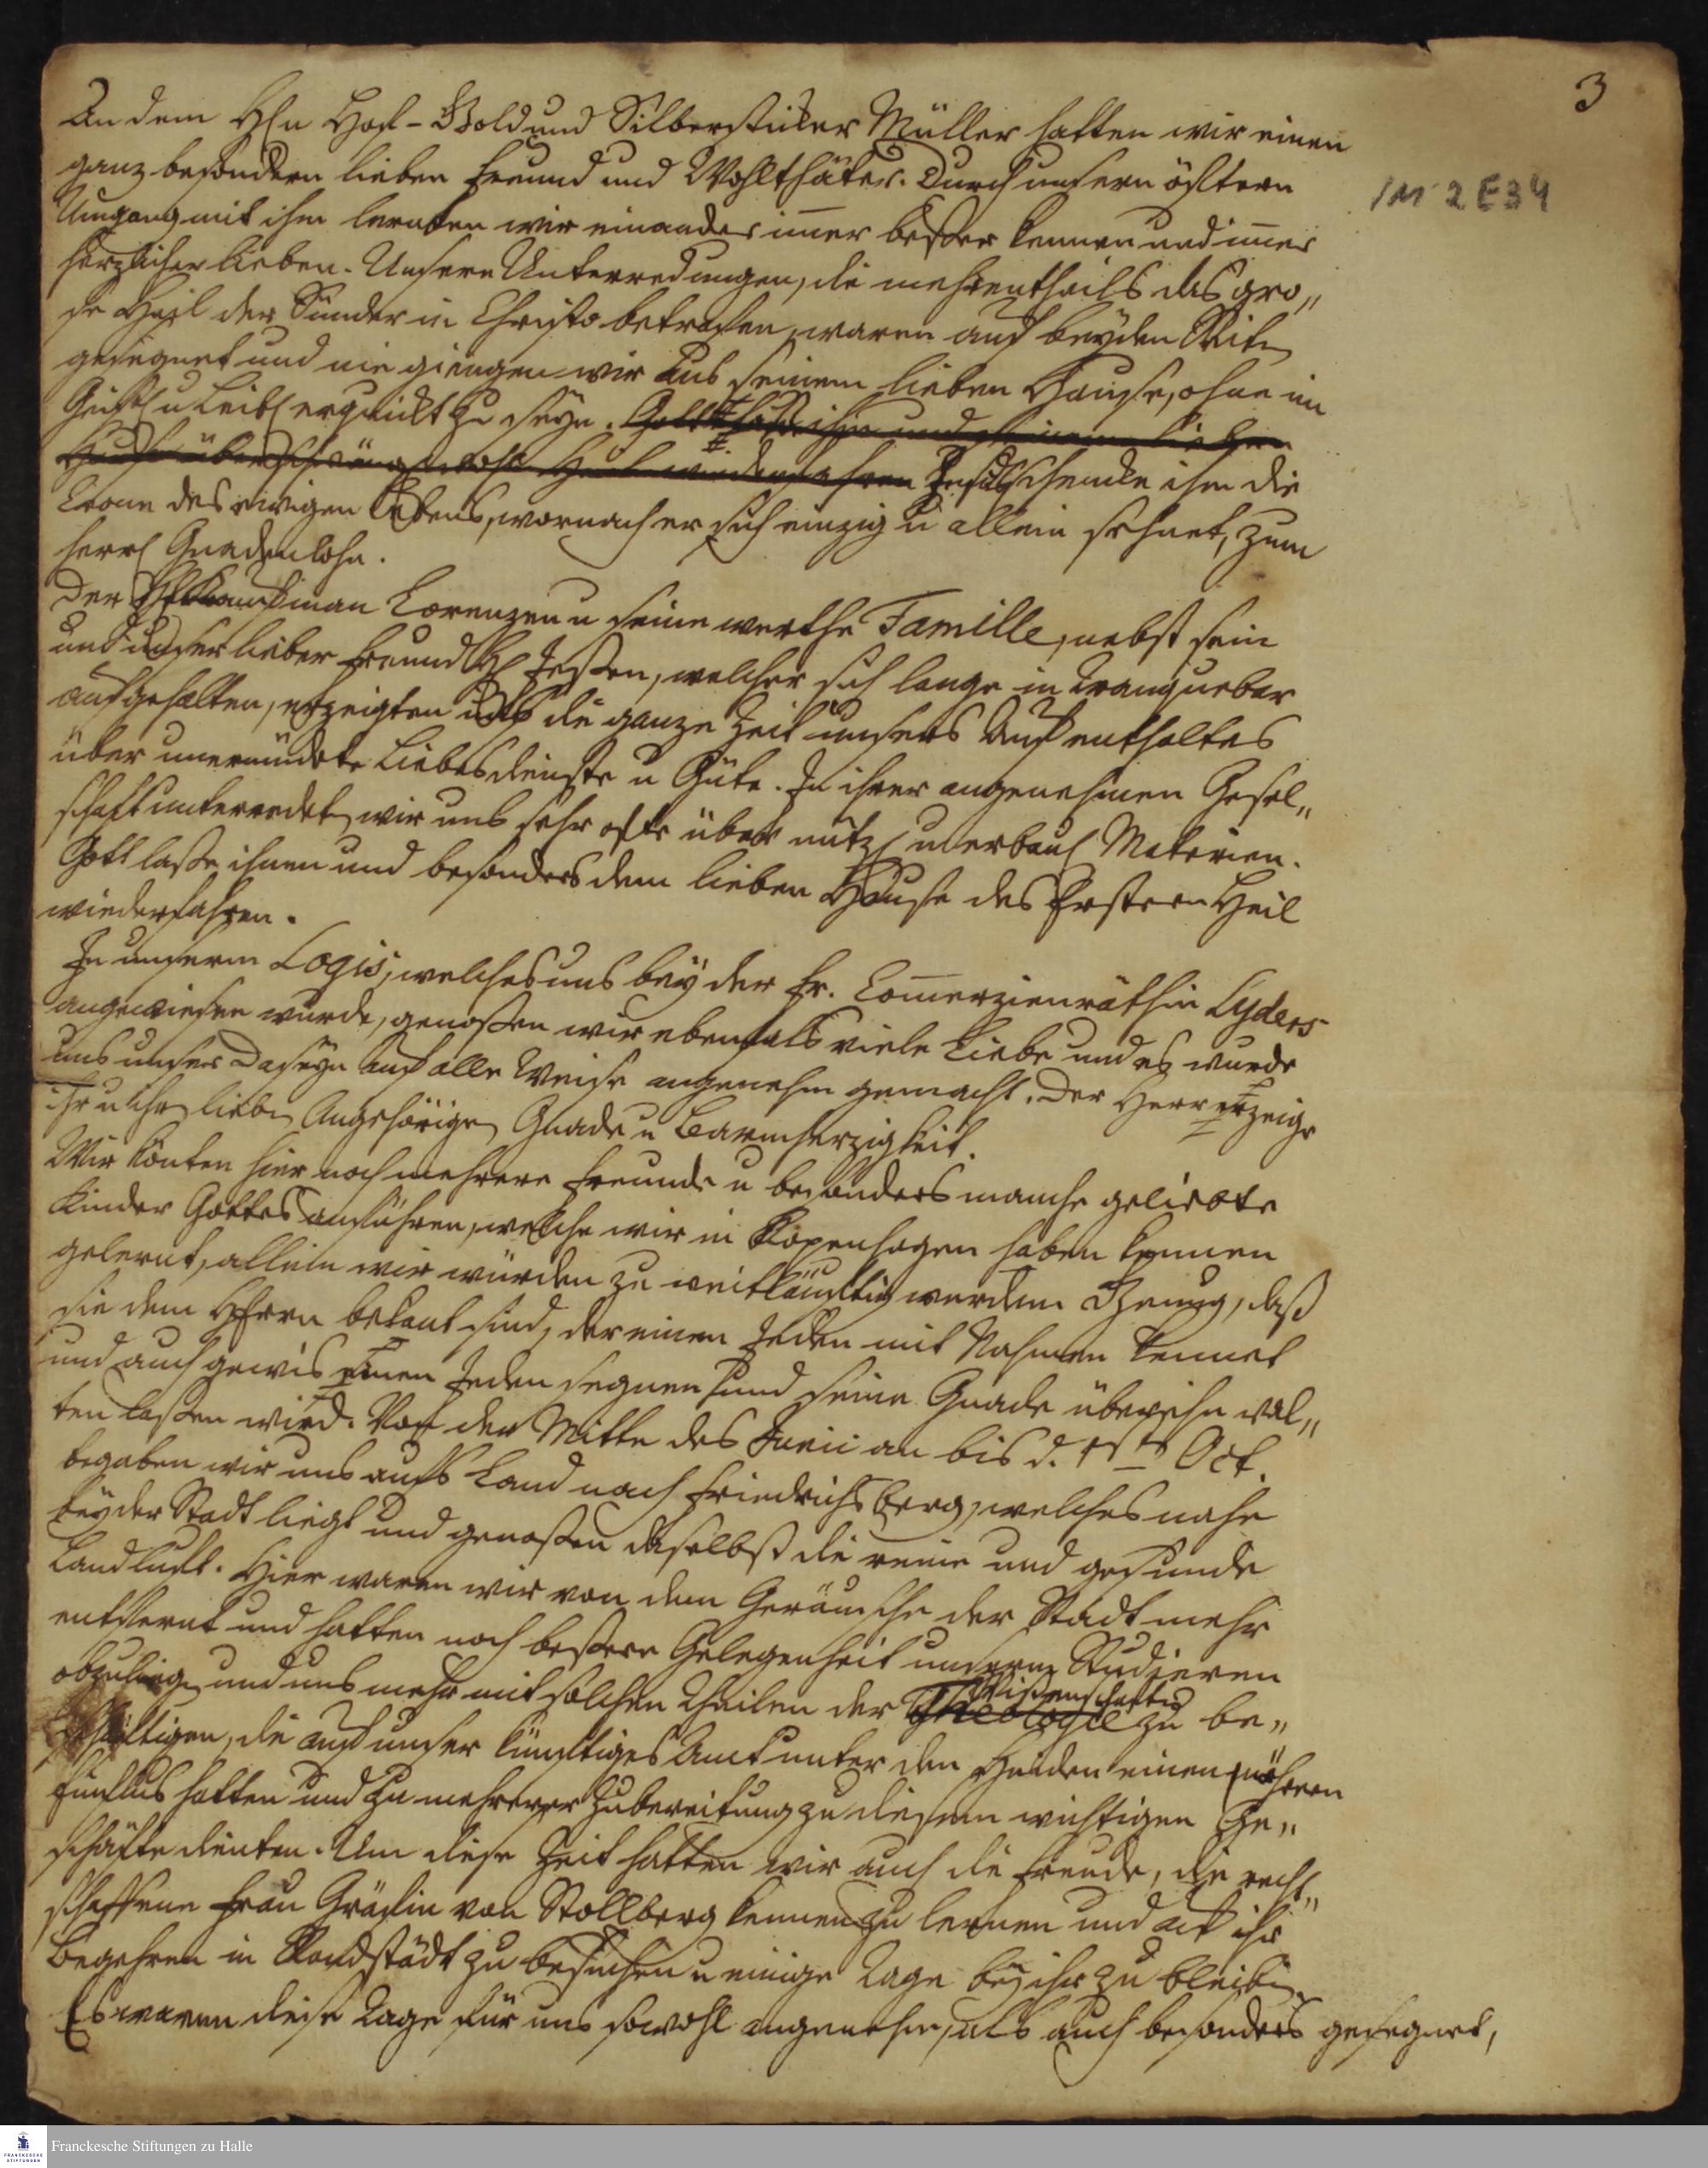 3
1M 2 E 34
An dem HEn Hof-Gold und Silbersticker Müller hatten wir einen
ganz besondern lieben Freund und Wohlthäter. Durch unsern öftern
Umgang mit ihm lernten wir einander im̄er beßer kennen und im̄er
herzlicher lieben. Unsere Unterredungen, die mehrentheils das gro„
se Heil der Sünder in Christo betrafen, waren auf beyden Seiten
gesegnet und nie giengen wir aus seinem lieben Hause, ohne im
Geistl u Leibl erquickt zu seyn. Gott laße ihm und seinem lieben
Hause überschwänglich Heil wiederfahren Jesus schencke ihm die
Crone des ewigen Lebens, wornach er sich einzig u allein sehnet, zum
herrl Gnadenlohn.
Der Kaufman Lorenzen u seine werthe Familie, nebst sein
und unser lieber Freund H Jeßen, welcher sich lange in Tranquebar
aufgehalten, erzeigten uns die ganze Zeit unsers Aufenthaltes
über unermüdete Liebesdienste u Güte. In ihrer angenehmen Gesel„
schaft unterredeten wir uns sehr oft über nützl u erbaul Materien.
Gott laße ihnen und besonders dem lieben Hause des Erstern Heil
wiederfahren.
In unserm Logis, welches uns bey der Fr. Com̄erzienräthin Lyders
angewiesen wurde, genoßen wir ebenfals viele Liebe und es wurde
uns unser Daseyn auf alle Weise angenehm gemacht. Der Herr erzeige
ihr u ihren lieben Angehörigen Gnade u Barmherzigkeit.
Wir könten hier noch mehrere Freunde u besonders manche geliebte
Kinder Gottes anführen, welche wir in Kopenhagen haben kennen
gelernt, allein wir würden zu weitläuftig werden. Genug, daß
sie dem HErrn bekant sind, der einen Jeden mit Nahmen kennet
und auch gewis einen Jeden segnen und seine Gnade über ihn wal„
ten laßen wird. Von der Mitte des Junii an bis d. 1sten Oct.
begaben wir uns aufs Land nach Friedrichsberg, welches nahe
bey der Stadt liegt und genoßen daselbst die reine und gesunde
Landluft. Hier waren wir von dem Geräusche der Stadt mehr
entfernt und hatten noch beßere Gelegenheit unserm Studieren
obzuliegen und uns mehr mit solchen Theilen der Theologie Wißenschaften zu be„
schäftigen, die auf unser künftiges Amt unter den Heiden einen nähern
Einflus hatten und zu mehrerer Zubereitung zu diesem wichtigen Ge„
schäfte dienten. Um diese Zeit hatten wir auch die Freude, die recht„
schaffene Frau Gräfin von Stollberg kennen zu lernen und auf ihr
Begehren in Rondstädt zu besuchen u einige Tage bey ihr zu bleiben.
Es waren diese Tage für uns sowohl angenehm, als auch besonders gesegnet,
Franckesche Stiftungen zu Halle